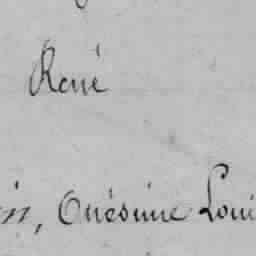 René
in, Onésime Loui